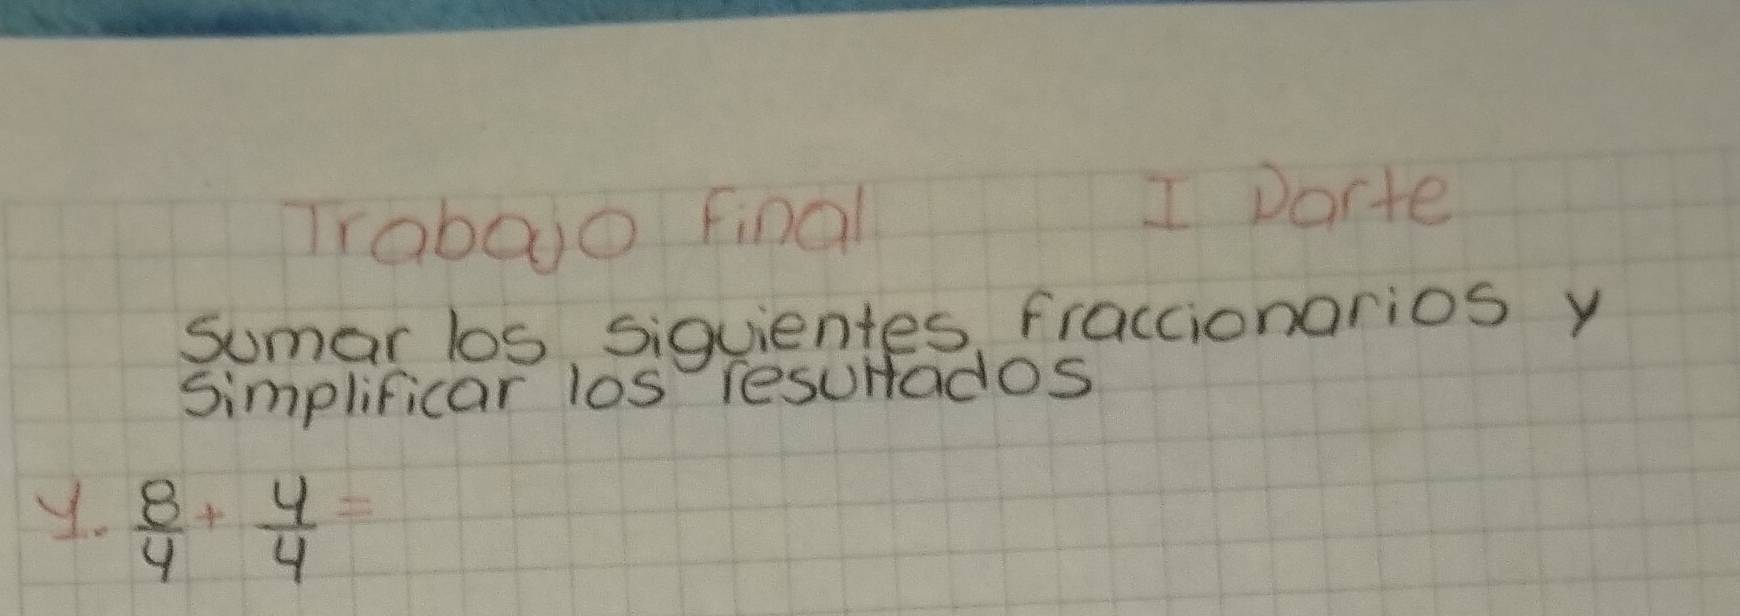 Trabajo Final I Parte
Sumar los siguientes fraccionarios y
simplificar los resultados
1. 8/4 + 4/4 =